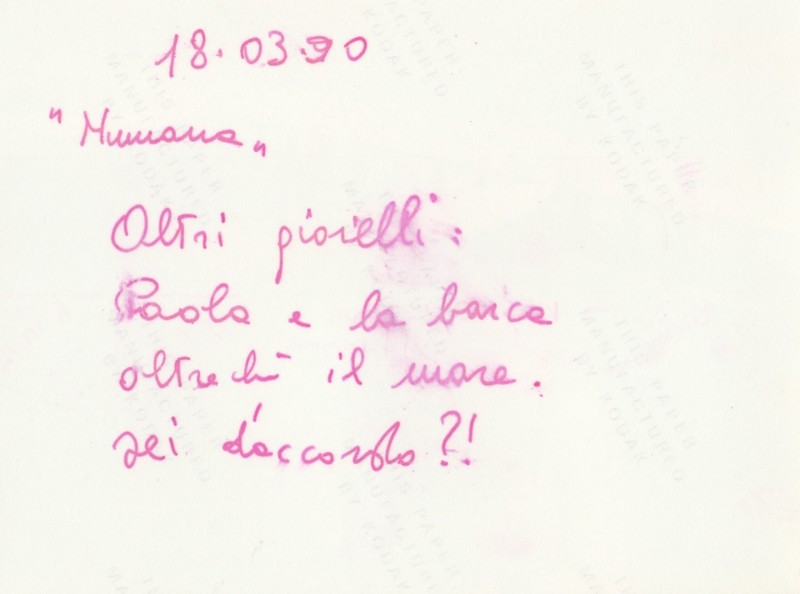 18.03.90
"Numana"
Altri gioielli:
Paola e la barca
oltreché il mare.
sei d'accordo?!
THIS PAPER
MANUFACTURED
BY KODAK